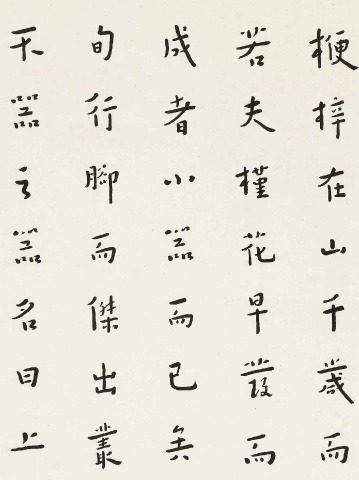 楩梓在山千歲而
若夫槿花早發而
成者小器而已矣
旬行腳而傑出叢
不器之器名曰上